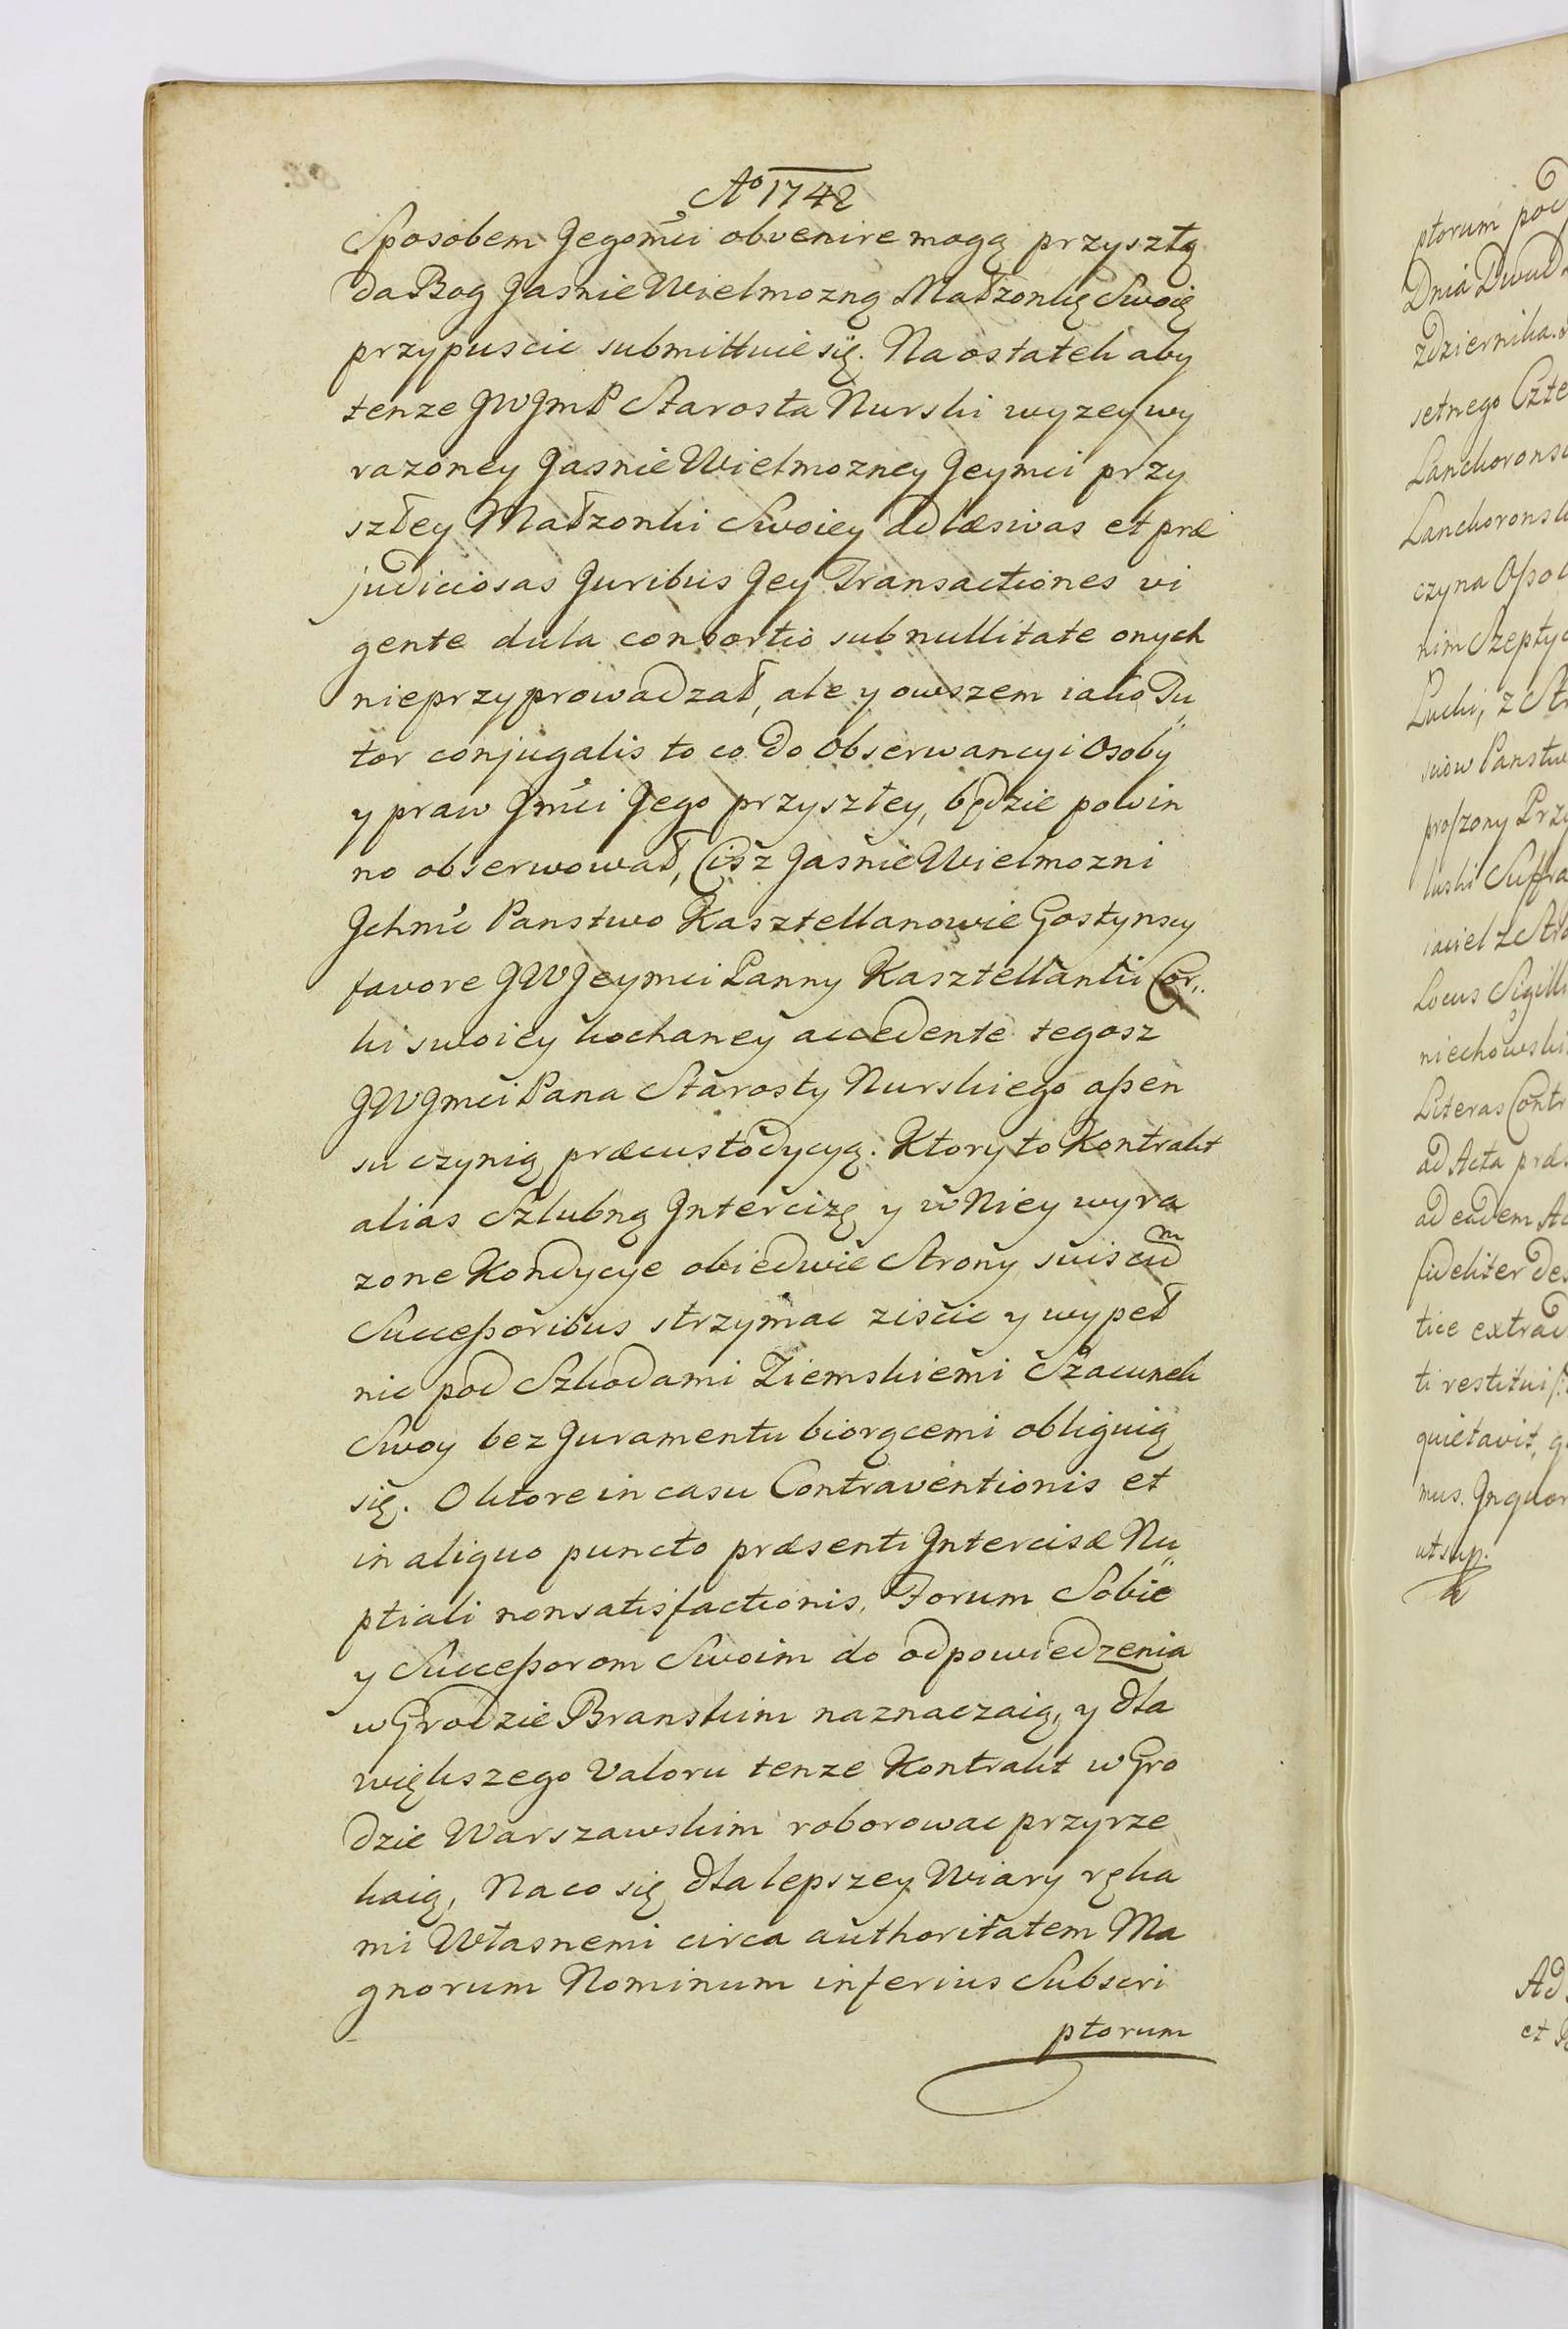 Aо 1742
Sposobem Jegomci obvenire mogą przyszłą
da Bog Jasnie Wielmozną Małzonkę Swoię
przypuscic submittuie się. Na ostatek aby
tenze JWJmP Starosta Nurski wyzey wy
razoney Jasnie Wielmozney Jeymci przy
szłey Małzonki Swoiey ad læsivas et præ
judiciosas Juribus Jey Transactiones vi
gente dula consortio sub nullitate onych
nieprzyprowadzał, ale y owszem iako Tu„
tor conjugalis to co do Obserwancyi Osoby
y praw Jmci Jego przyszłey, będzie powin
no obserwował, Cisz Jasnie Wielmozni
Ichmc Panstwo Kasztellanowie Gostynscy
favore JWJeymci Panny Kasztellanki Cor„
ki swoiey kochaney accedente tegosz
JWJmci Pana Starosty Nurskiego assen
su czynią præcustodycyą. Ktory to Kontrakt
alias Szlubną Intercizę y w Niey wyra
zone Kondycye obiedwie Strony suis cum
Successoribus strzymac ziscic y wypeł
nic pod Szkodami Ziemskiemi Szacunek
Swoy bez Juramentu biorącemi obliguią
się. O ktore in casu Contraventionis et
in aliquo puncto præsenti Intercisæ Nu„
ptiali nonsatisfactionis, Forum Sobie
y Successorom Swoim do odpowiedzenia
w Grodzie Branskim naznaczaią, y dla
większego Valoru tenze Kontrakt w Gro
dzie Warszawskim roborowac przyrze
kaią, Na co się dla lepszey Wiary ręka
mi Własnemi circa authoritatem Ma
gnorum Nominum inferius Subscri
ptorum
ptorum pod
Dnia Dwud
zdziernika.
setnego Czte
Lanckoronsk
Lanckoronsk
czyna Ossol
nim Szeptyc
Lucki, z St
sciow Panstw
proszony Prz
luski Suffra
iaciel z Str
Locus Sigilli
niechowski
Literas Contr
ad Acta præ
ad eadem Ac
fideliter des
tice extrad
ti restitui
quietavit, q
mus. In quor
ut sup.
Ad
et